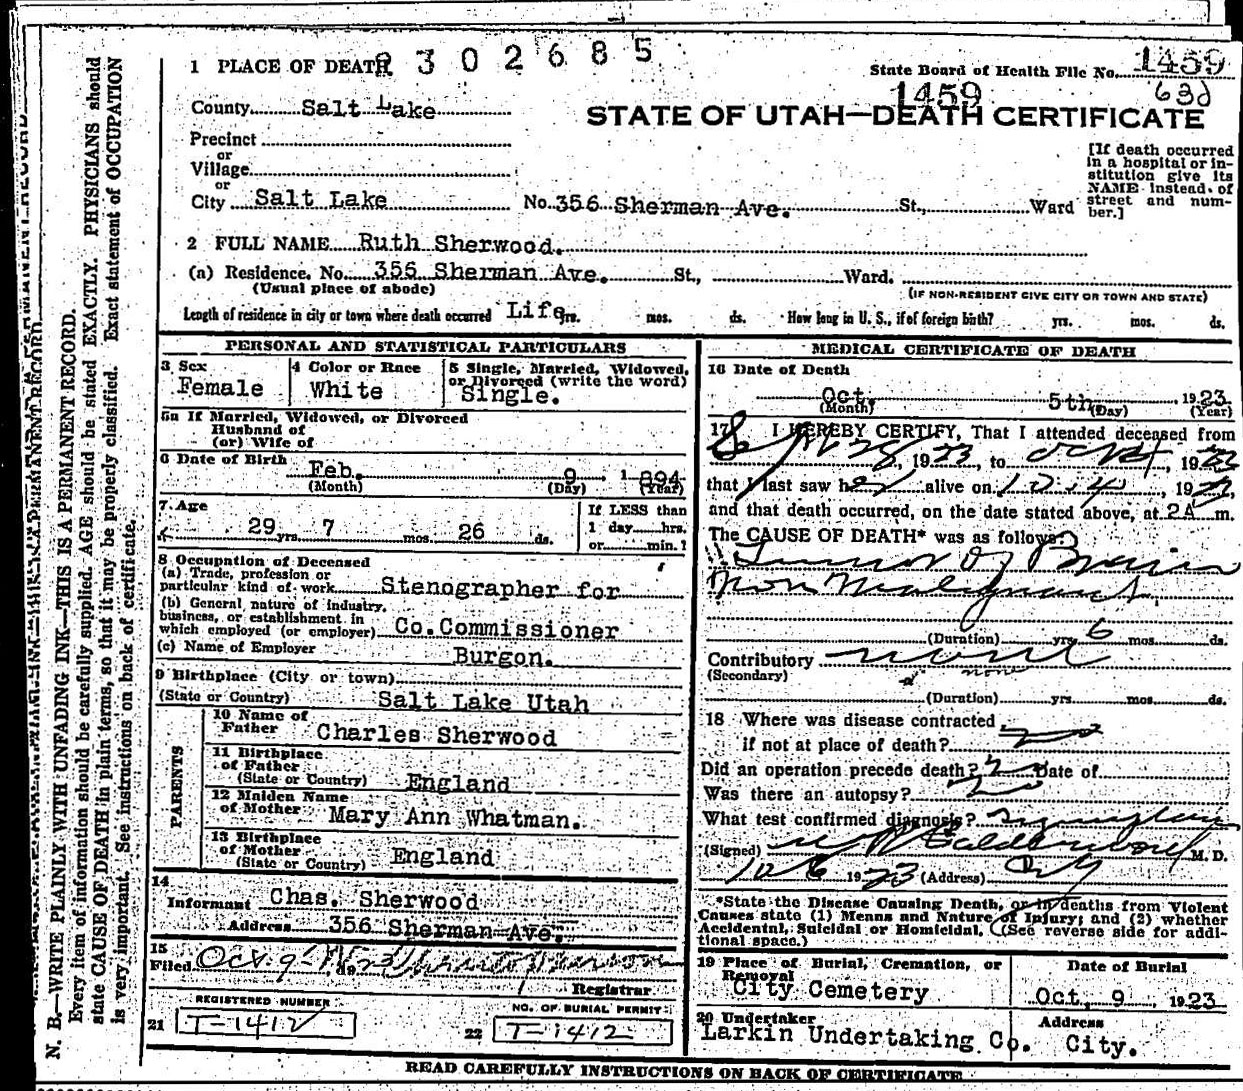 2302685
1 PLACE OF DEATH
State Board of Health File No. 1459
1459 63d
County Salt Lake
STATE OF UTAH—DEATH CERTIFICATE
Precinct
or
Village
or
City Salt Lake No. 356 Sherman Ave. St., Ward
[If death occurred
in a hospital or in-
stitution give its
NAME instead of
street and num-
ber.]
2 FULL NAME Ruth Sherwood.
(a) Residence. No. 356 Sherman Ave. St., Ward.
(Usual place of abode) (IF NON-RESIDENT GIVE CITY OR TOWN AND STATE)
Length of residence in city or town where death occurred Life yrs. mos. ds. How long in U. S., if of foreign birth? yrs. mos. ds.
PERSONAL AND STATISTICAL PARTICULARS
3 Sex
Female
4 Color or Race
White
5 Single, Married, Widowed,
or Divorced (write the word)
Single.
5a If Married, Widowed, or Divorced
Husband of
(or) Wife of
6 Date of Birth Feb. 9 1894
(Month) (Day) (Year)
7 Age
29 yrs. 7 mos. 26 ds.
If LESS than
1 day hrs.
or min. ?
8 Occupation of Deceased
(a) Trade, profession or
particular kind of work Stenographer for
(b) General nature of industry,
business, or establishment in
which employed (or employer) Co.Commissioner
(c) Name of Employer Burgon.
9 Birthplace (City or town)
(State or Country) Salt Lake Utah
PARENTS
10 Name of
Father Charles Sherwood
11 Birthplace
of Father
(State or Country) England
12 Maiden Name
of Mother Mary Ann Whatman.
13 Birthplace
of Mother
(State or Country) England
14
Informant Chas. Sherwood
Address 356 Sherman Ave.
15
Filed Oct. 9 1923
Registrar
REGISTERED NUMBER
21 T-1412
NO. OF BURIAL PERMIT
22 T-1412
MEDICAL CERTIFICATE OF DEATH
16 Date of Death
Oct. 5th 1923
(Month) (Day) (Year)
17 I HEREBY CERTIFY, That I attended deceased from
1923, to Oct 4, 1923
that I last saw her alive on 10-4, 192
and that death occurred, on the date stated above, at 2A m.
The CAUSE OF DEATH* was as follows:
Tumor of Brain
Non Malignant.
(Duration) yrs. 6 mos. ds.
Contributory none
(Secondary) none
(Duration) yrs. mos. ds.
18 Where was disease contracted
if not at place of death?
Did an operation precede death? Date of
Was there an autopsy? No
What test confirmed diagnosis?
(Signed) M. D.
10/6 1923 (Address) City
*State the Disease Causing Death, or in deaths from Violent
Causes state (1) Means and Nature of Injury; and (2) whether
Accidental, Suicidal or Homicidal. (See reverse side for addi-
tional space.)
19 Place of Burial, Cremation, or
Removal
City Cemetery
Date of Burial
Oct. 9, 1923
20 Undertaker
Larkin Undertaking Co.
Address
City.
READ CAREFULLY INSTRUCTIONS ON BACK OF CERTIFICATE
N. B.—WRITE PLAINLY WITH UNFADING INK—THIS IS A PERMANENT RECORD.
Every item of information should be carefully supplied. AGE should be stated EXACTLY. PHYSICIANS should
state CAUSE OF DEATH in plain terms, so that it may be properly classified. Exact statement of OCCUPATION
is very important. See instructions on back of certificate.